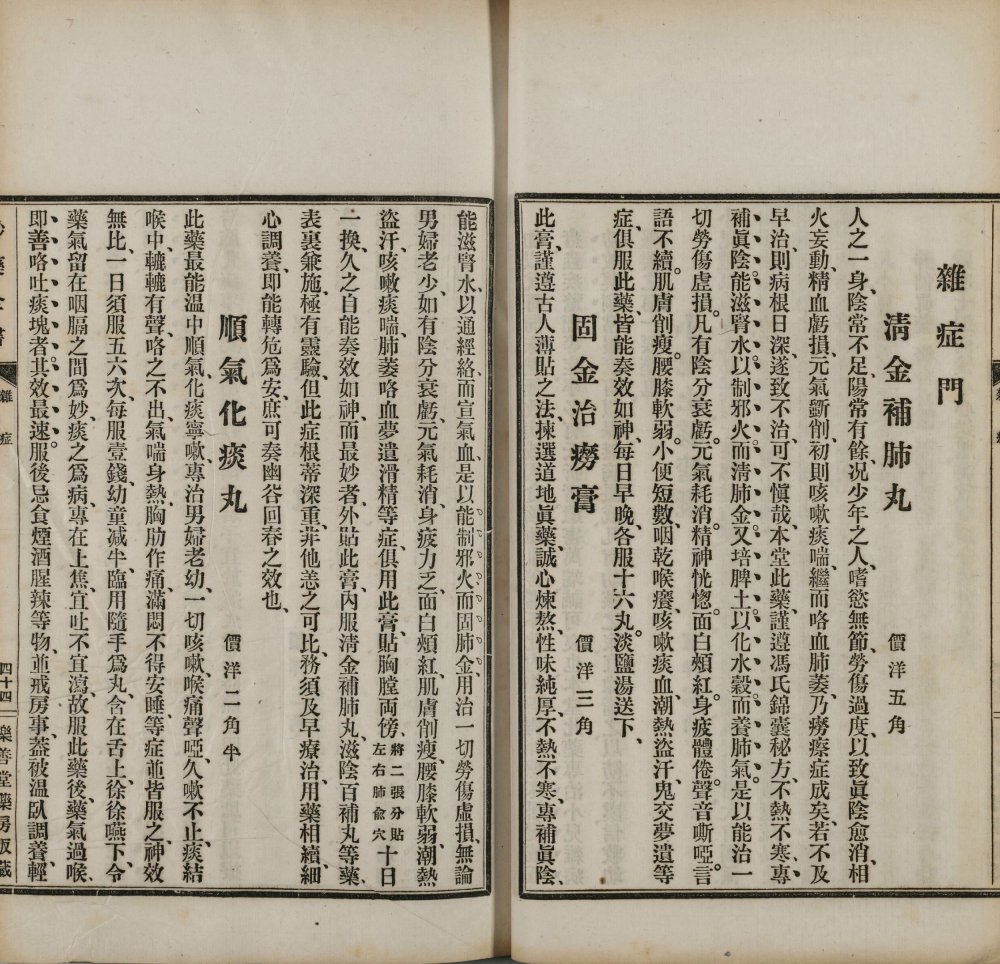 雜症門
清金補肺丸 價洋五角
人之一身、陰常不足、陽常有餘、况少年之人、嗜慾無節、勞傷過度、以致眞陰愈消、相
火妄動、精血虧損、元氣斷削、初則咳嗽痰喘、繼而咯血肺萎、乃癆瘵症成矣、若不及
早治、則病根日深、遂致不治、可不愼哉、本堂此藥、謹遵馮氏錦囊秘方、不熱不寒、專
補眞陰、能滋腎水、以制邪火、而清肺金、又培脾土、以化水穀、而養肺氣、是以能治一
切勞傷虛損。凡有陰分衰虧。元氣耗消。精神恍惚。面白頰紅。身疲體倦。聲音嘶啞。言
語不續。肌膚削瘦。腰膝軟弱。小便短數、咽乾喉癢、咳嗽痰血、潮熱盜汗、鬼交夢遺等
症、俱服此藥、皆能奏效如神、每日早晚、各服十六丸、淡鹽湯送下、
固金治癆膏 價洋三角
此膏、謹遵古人薄貼之法、揀選道地眞藥、誠心煉熬、性味純厚、不熱不寒、專補眞陰、
能滋腎水、以通經絡、而宣氣血、是以能制邪火、而固肺金、用治一切勞傷虛損、無論
男婦老少、如有陰分衰虧、元氣耗消、身疲力乏、面白頰紅、肌膚削瘦、腰膝軟弱、潮熱
盜汗、咳嗽痰喘、肺萎咯血、夢遺滑精等症、俱用此膏、貼胸膛両傍、將二張分貼左右肺俞穴十日
一換、久之自能奏效如神、而最妙者、外貼此膏、內服清金補肺丸、滋陰百補丸等藥、
表裏兼施、極有靈驗、但此症根蒂深重、非他恙之可比、務須及早療治、用藥相續、細
心調養、即能轉危爲安、庶可奏幽谷回春之效也、
順氣化痰丸 價洋二角半
此藥最能温中順氣、化痰寧嗽、專治男婦老幼、一切咳嗽、喉痛聲啞、久嗽不止、痰結
喉中、轆轆有聲、咯之不出、氣喘身熱、胸肋作痛、滿悶不得安睡等症、並皆服之、神效
無比、一日須服五六次、每服壹錢、幼童減半、臨用隨手爲丸、含在舌上、徐徐嚥下、令
藥氣留在咽膈之間爲妙、痰之爲病、專在上焦、宜吐不宜瀉、故服此藥後、藥氣過喉、
即善咯吐痰塊者、其效最速、服後忌食煙酒腥辣等物、並戒房事、蓋被温臥調養、輕
藥 書 雜症 四十四 樂善堂藥房版藏